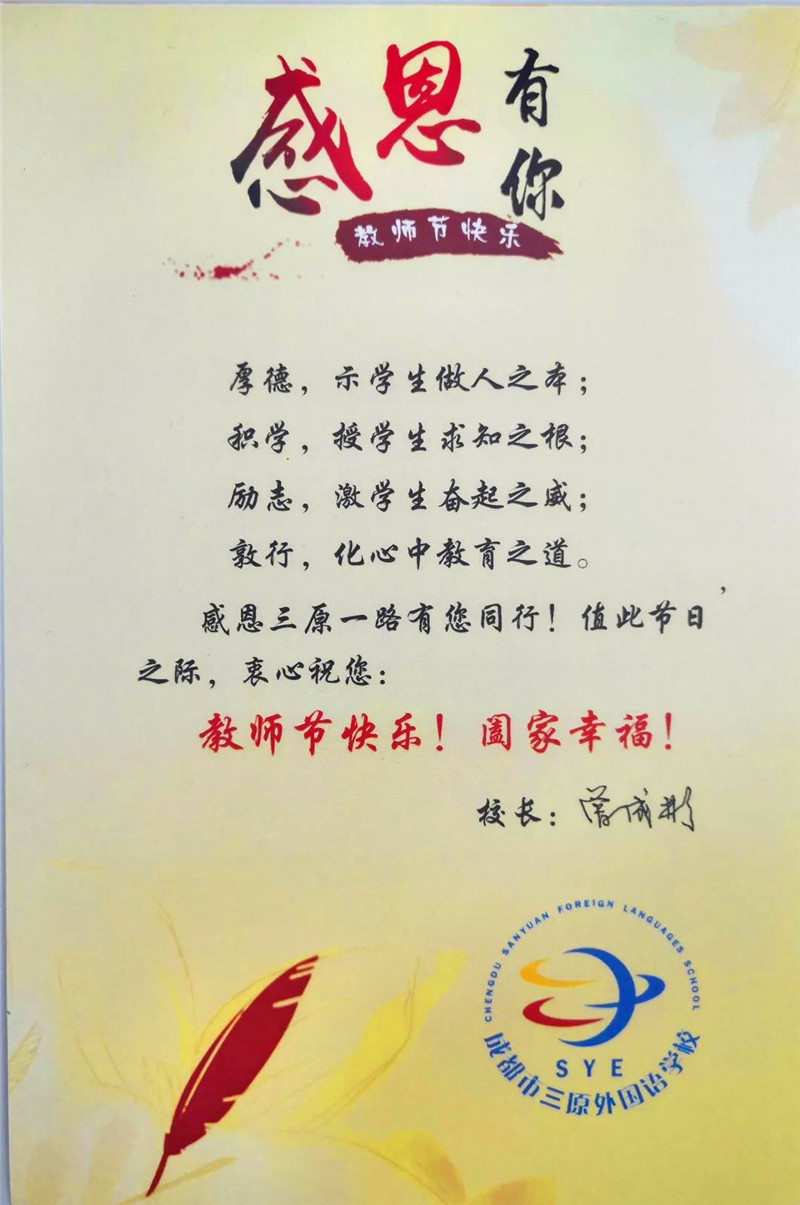 感恩有你
教师节快乐
厚德，示学生做人之本；
积学，授学生求知之根；
励志，激学生奋起之威；
敦行，化心中教育之道。
感恩三原一路有您同行！值此节日，
之际，衷心祝您：
教师节快乐！阖家幸福！
校长：曾成彬
CHENGDU SANYUAN FOREIGN LANGUAGES SCHOOL
SYE
成都市三原外国语学校